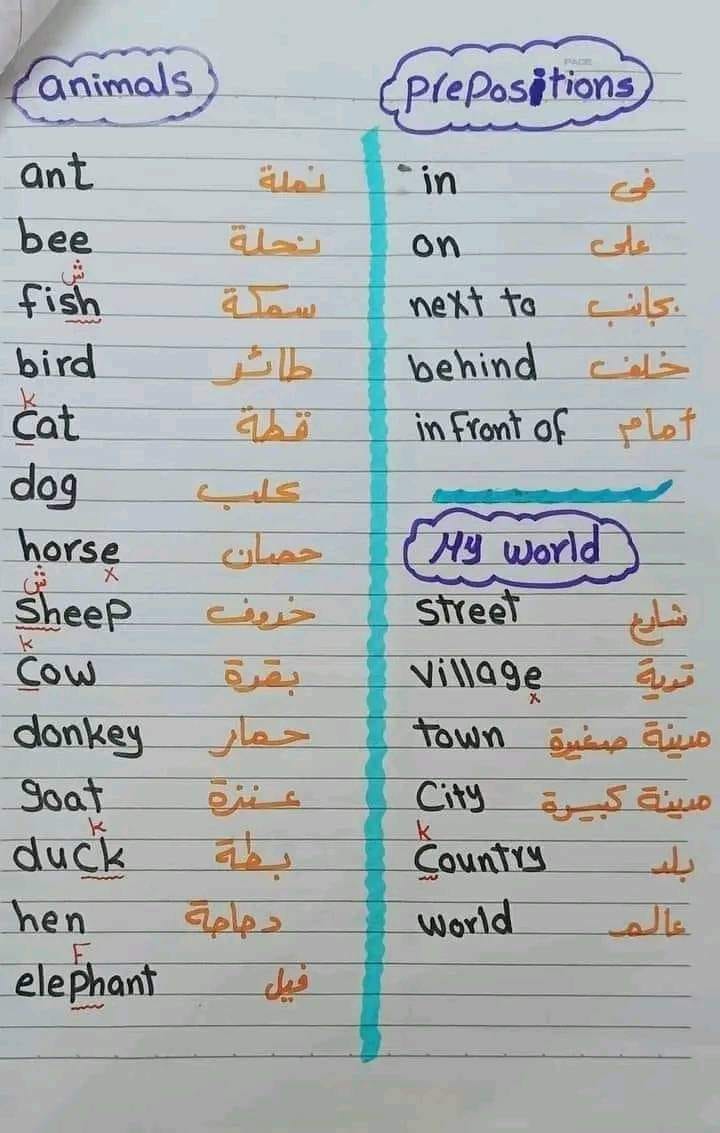 animals
ant نملة
bee نحلة
ش
fish سمكة
bird طائر
k
cat قطة
dog كلب
horse حصان
x
ش
sheep خروف
k
cow بقرة
donkey حمار
goat عنزة
k
duck بطة
hen دجاجة
F
elephant فيل
PAGE
prepositions
in فى
on على
next to بجانب
behind خلف
in front of أمام
My world
street شارع
village قرية
x
town مدينة صغيرة
City مدينة كبيرة
k
Country بلد
world عالم